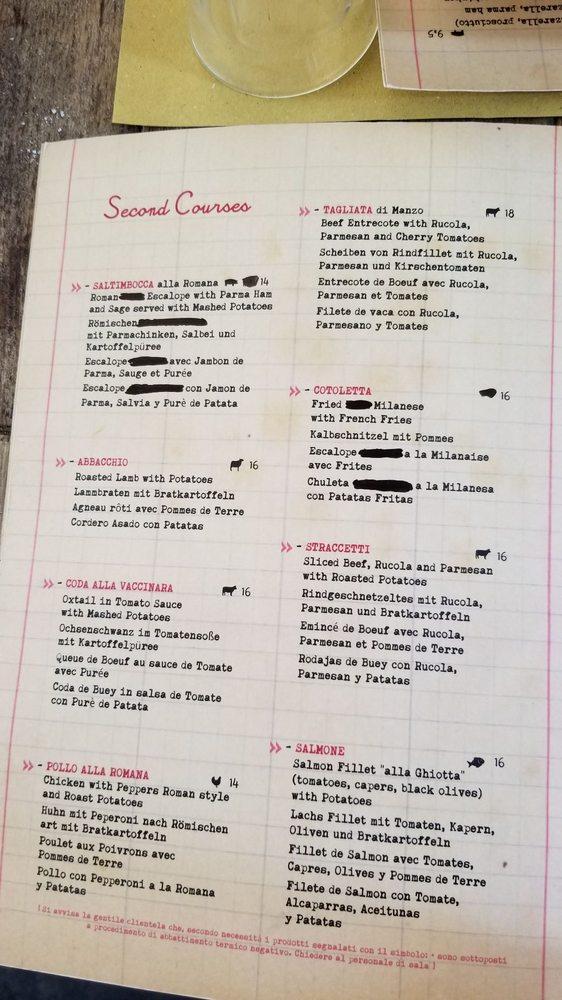 9,5
zarella, prosciutto)
zarella, parma ham
Second Courses
- SALTIMBOCCA alla Romana 14
Roman Escalope with Parma Ham
and Sage served with Mashed Potatoes
Römischen
mit Parmachinken, Salbei und
Kartoffelpüree
Escalope avec Jambon de
Parma, Sauge et Purée
Escalope con Jamon de
Parma, Salvia y Purè de Patata
- ABBACCHIO 16
Roasted Lamb with Potatoes
Lammbraten mit Bratkartoffeln
Agneau rôti avec Pommes de Terre
Cordero Asado con Patatas
- CODA ALLA VACCINARA 16
Oxtail in Tomato Sauce
with Mashed Potatoes
Ochsenschwanz im Tomatensoße
mit Kartoffelpüree
Queue de Boeuf au sauce de Tomate
avec Purée
Coda de Buey in salsa de Tomate
con Purè de Patata
- POLLO ALLA ROMANA 14
Chicken with Peppers Roman style
and Roast Potatoes
Huhn mit Peperoni nach Römischen
art mit Bratkartoffeln
Poulet aux Poivrons avec
Pommes de Terre
Pollo con Pepperoni a la Romana
y Patatas
- TAGLIATA di Manzo 18
Beef Entrecote with Rucola,
Parmesan and Cherry Tomatoes
Scheiben von Rindfillet mit Rucola,
Parmesan und Kirschentomaten
Entrecote de Boeuf avec Rucola,
Parmesan et Tomates
Filete de vaca con Rucola,
Parmesano y Tomates
- COTOLETTA 16
Fried Milanese
with French Fries
Kalbschnitzel mit Pommes
Escalope a la Milanaise
avec Frites
Chuleta a la Milanesa
con Patatas Fritas
- STRACCETTI 16
Sliced Beef, Rucola and Parmesan
with Roasted Potatoes
Rindgeschnetzeltes mit Rucola,
Parmesan und Bratkartoffeln
Emincé de Boeuf avec Rucola,
Parmesan et Pommes de Terre
Rodajas de Buey con Rucola,
Parmesan y Patatas
- SALMONE 16
Salmon Fillet "alla Ghiotta"
(tomatoes, capers, black olives)
with Potatoes
Lachs Fillet mit Tomaten, Kapern,
Oliven und Bratkartoffeln
Fillet de Salmon avec Tomates,
Capres, Olives y Pommes de Terre
Filete de Salmon con Tomate,
Alcaparras, Aceitunas
y Patatas
!Si avvisa la gentile clientela che, secondo necessità i prodotti segnalati con il simbolo: · sono sottoposti
a procedimento di abbattimento termico negativo. Chiedere al personale di sala!